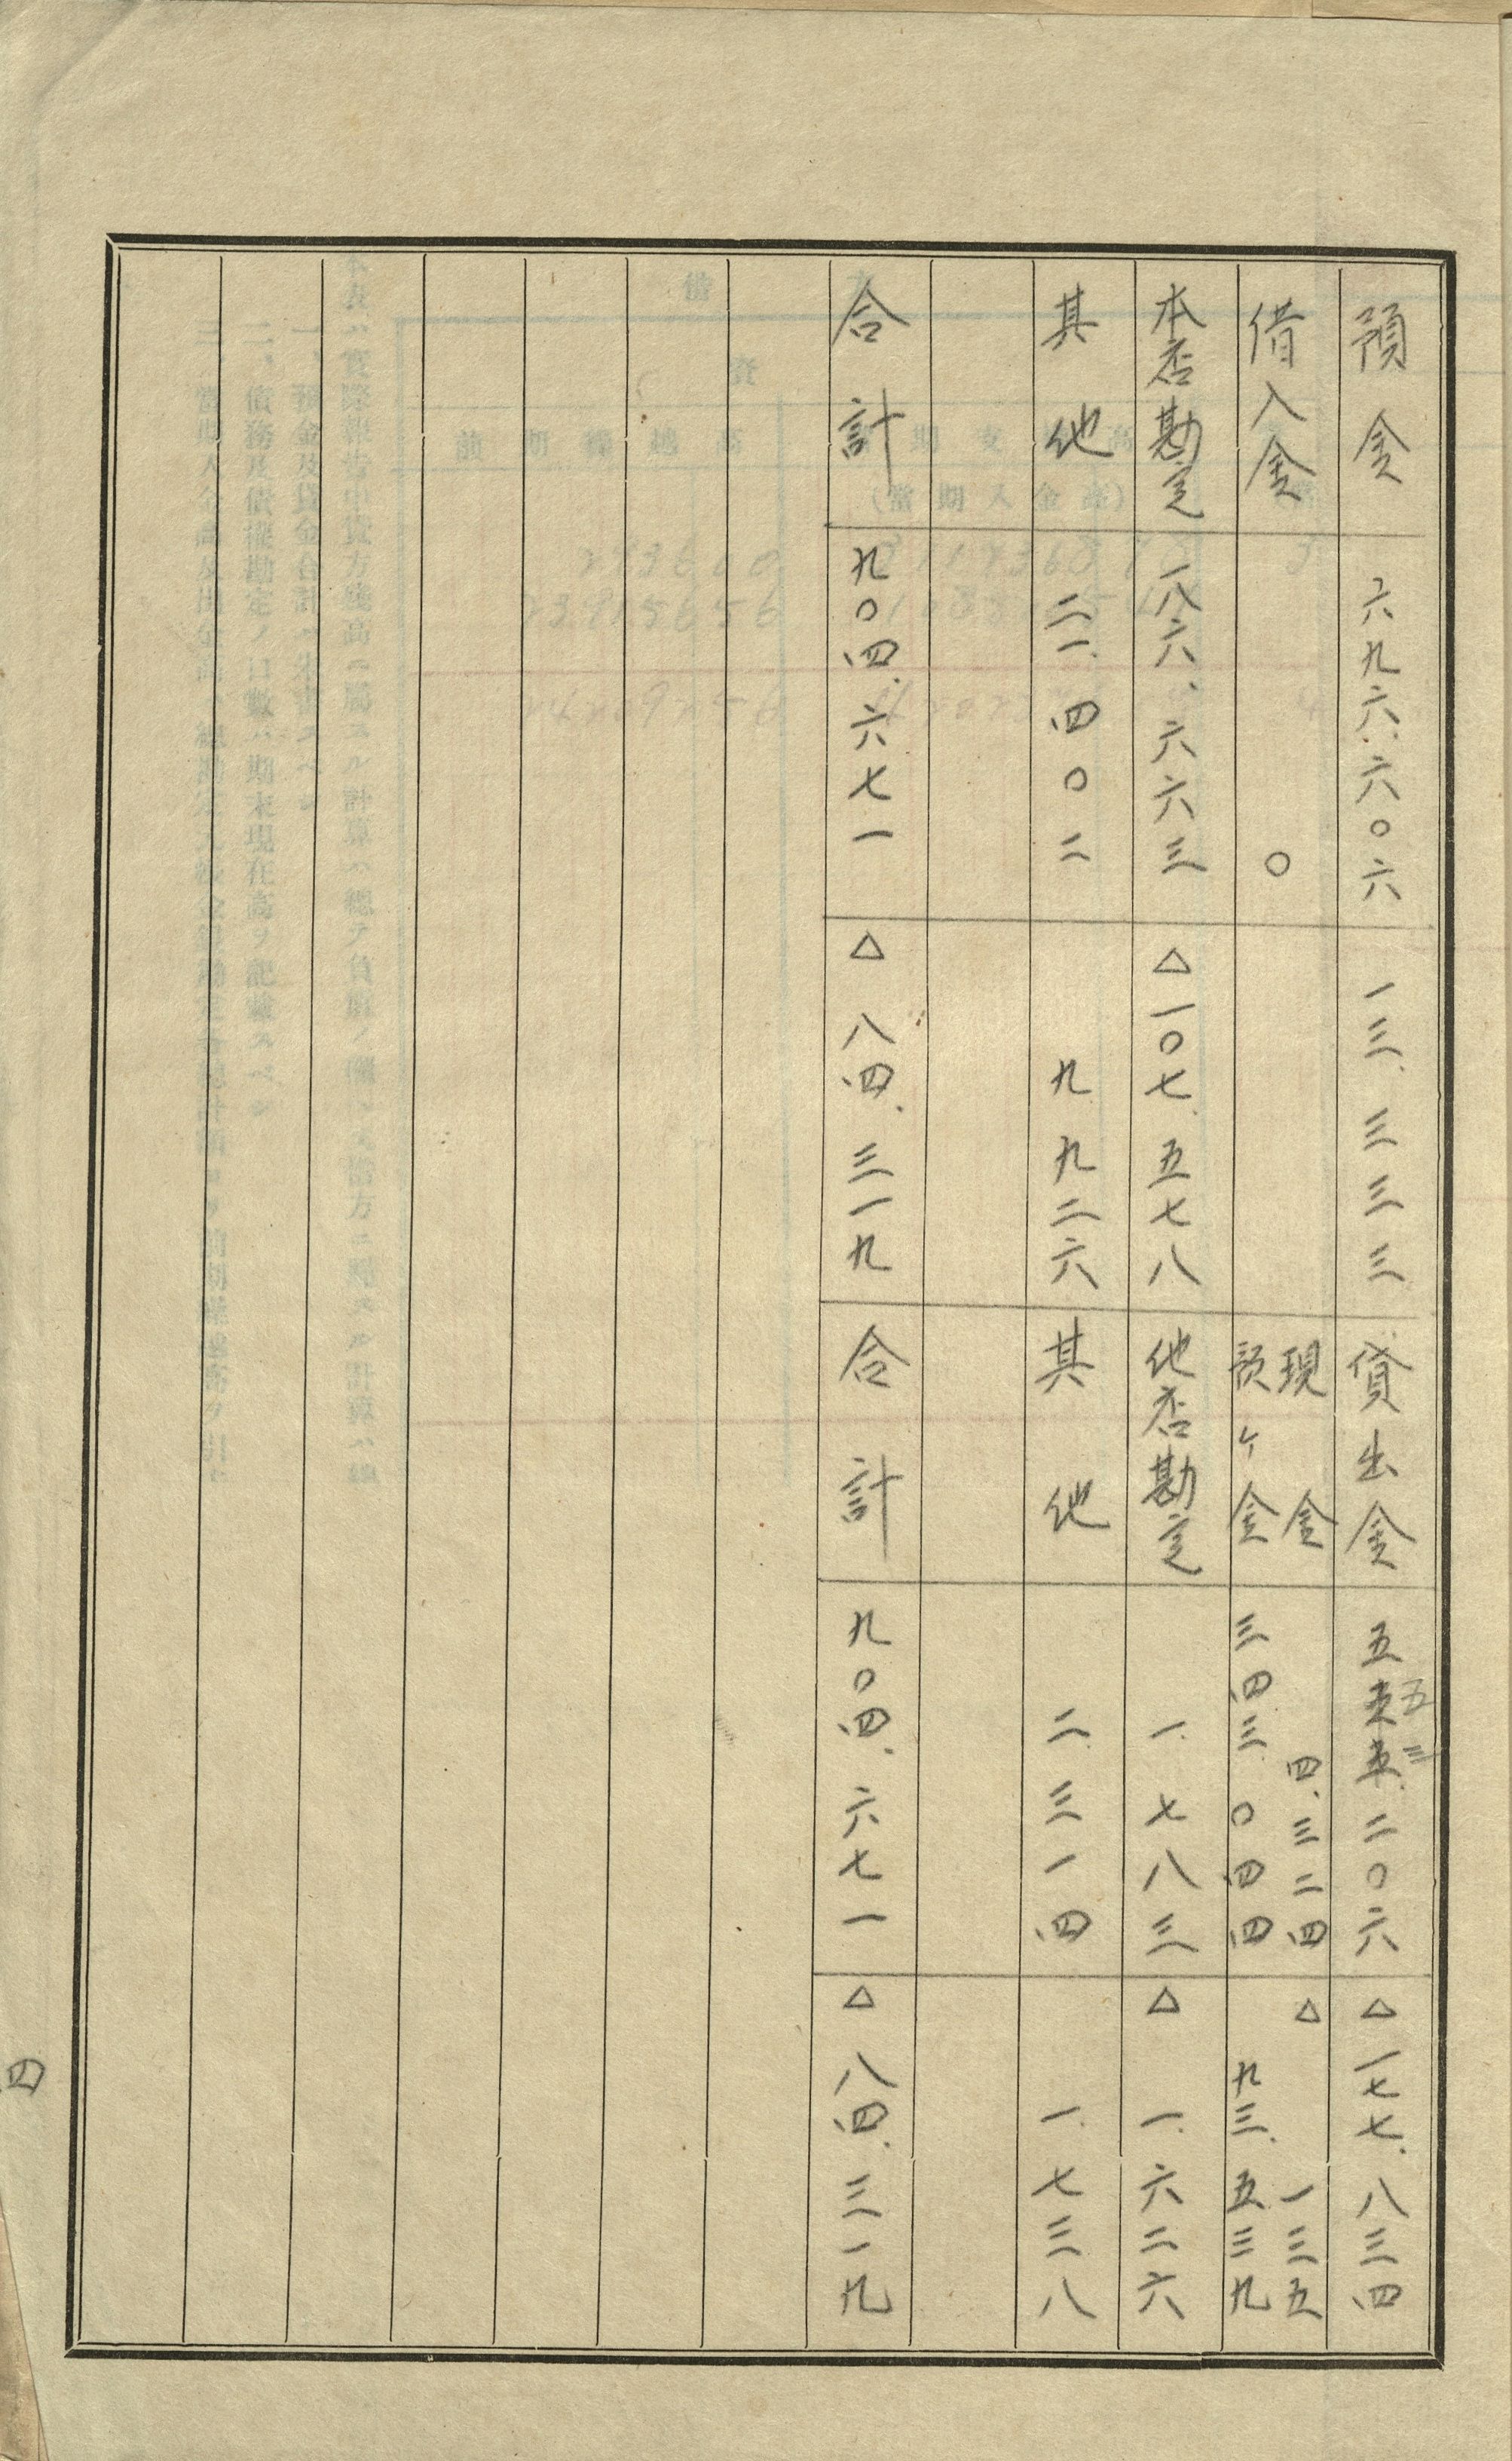 預金 六九六、六〇六 一三、三三三 貸出金 五五三、二〇六 △一七七、八三四
借入金 〇 現金 四、三二四 △一三五
預ケ金 三四三、〇四四 九三、五三九
本店勘定 一八六、六六三 △一〇七、五七八 他店勘定 一、七八三 △一、六二六
其他 二一、四〇二 九、九二六 其他 二、三一四 一、七三八
合計 九〇四、六七一 △八四、三一九 合計 九〇四、六七一 △八四、三一九
四